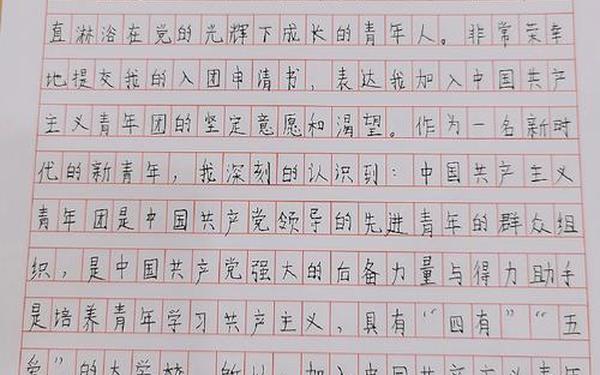 直淋浴在党的光辉下成长的青年人。非常荣幸
地提交我的入团申请书，表达我加入中国共产
主义青年团的坚定意愿和渴望。作为一名新时
代的新青年，我深刻的认识到：中国共产主义
青年团是中国共产党领导的先进青年的群众组
织，是中国共产党强大的后备力量与得力助手
是培养青年学习共产主义，具有“四有”“五
爱”的大学校。所以，加入中国共产主义青年